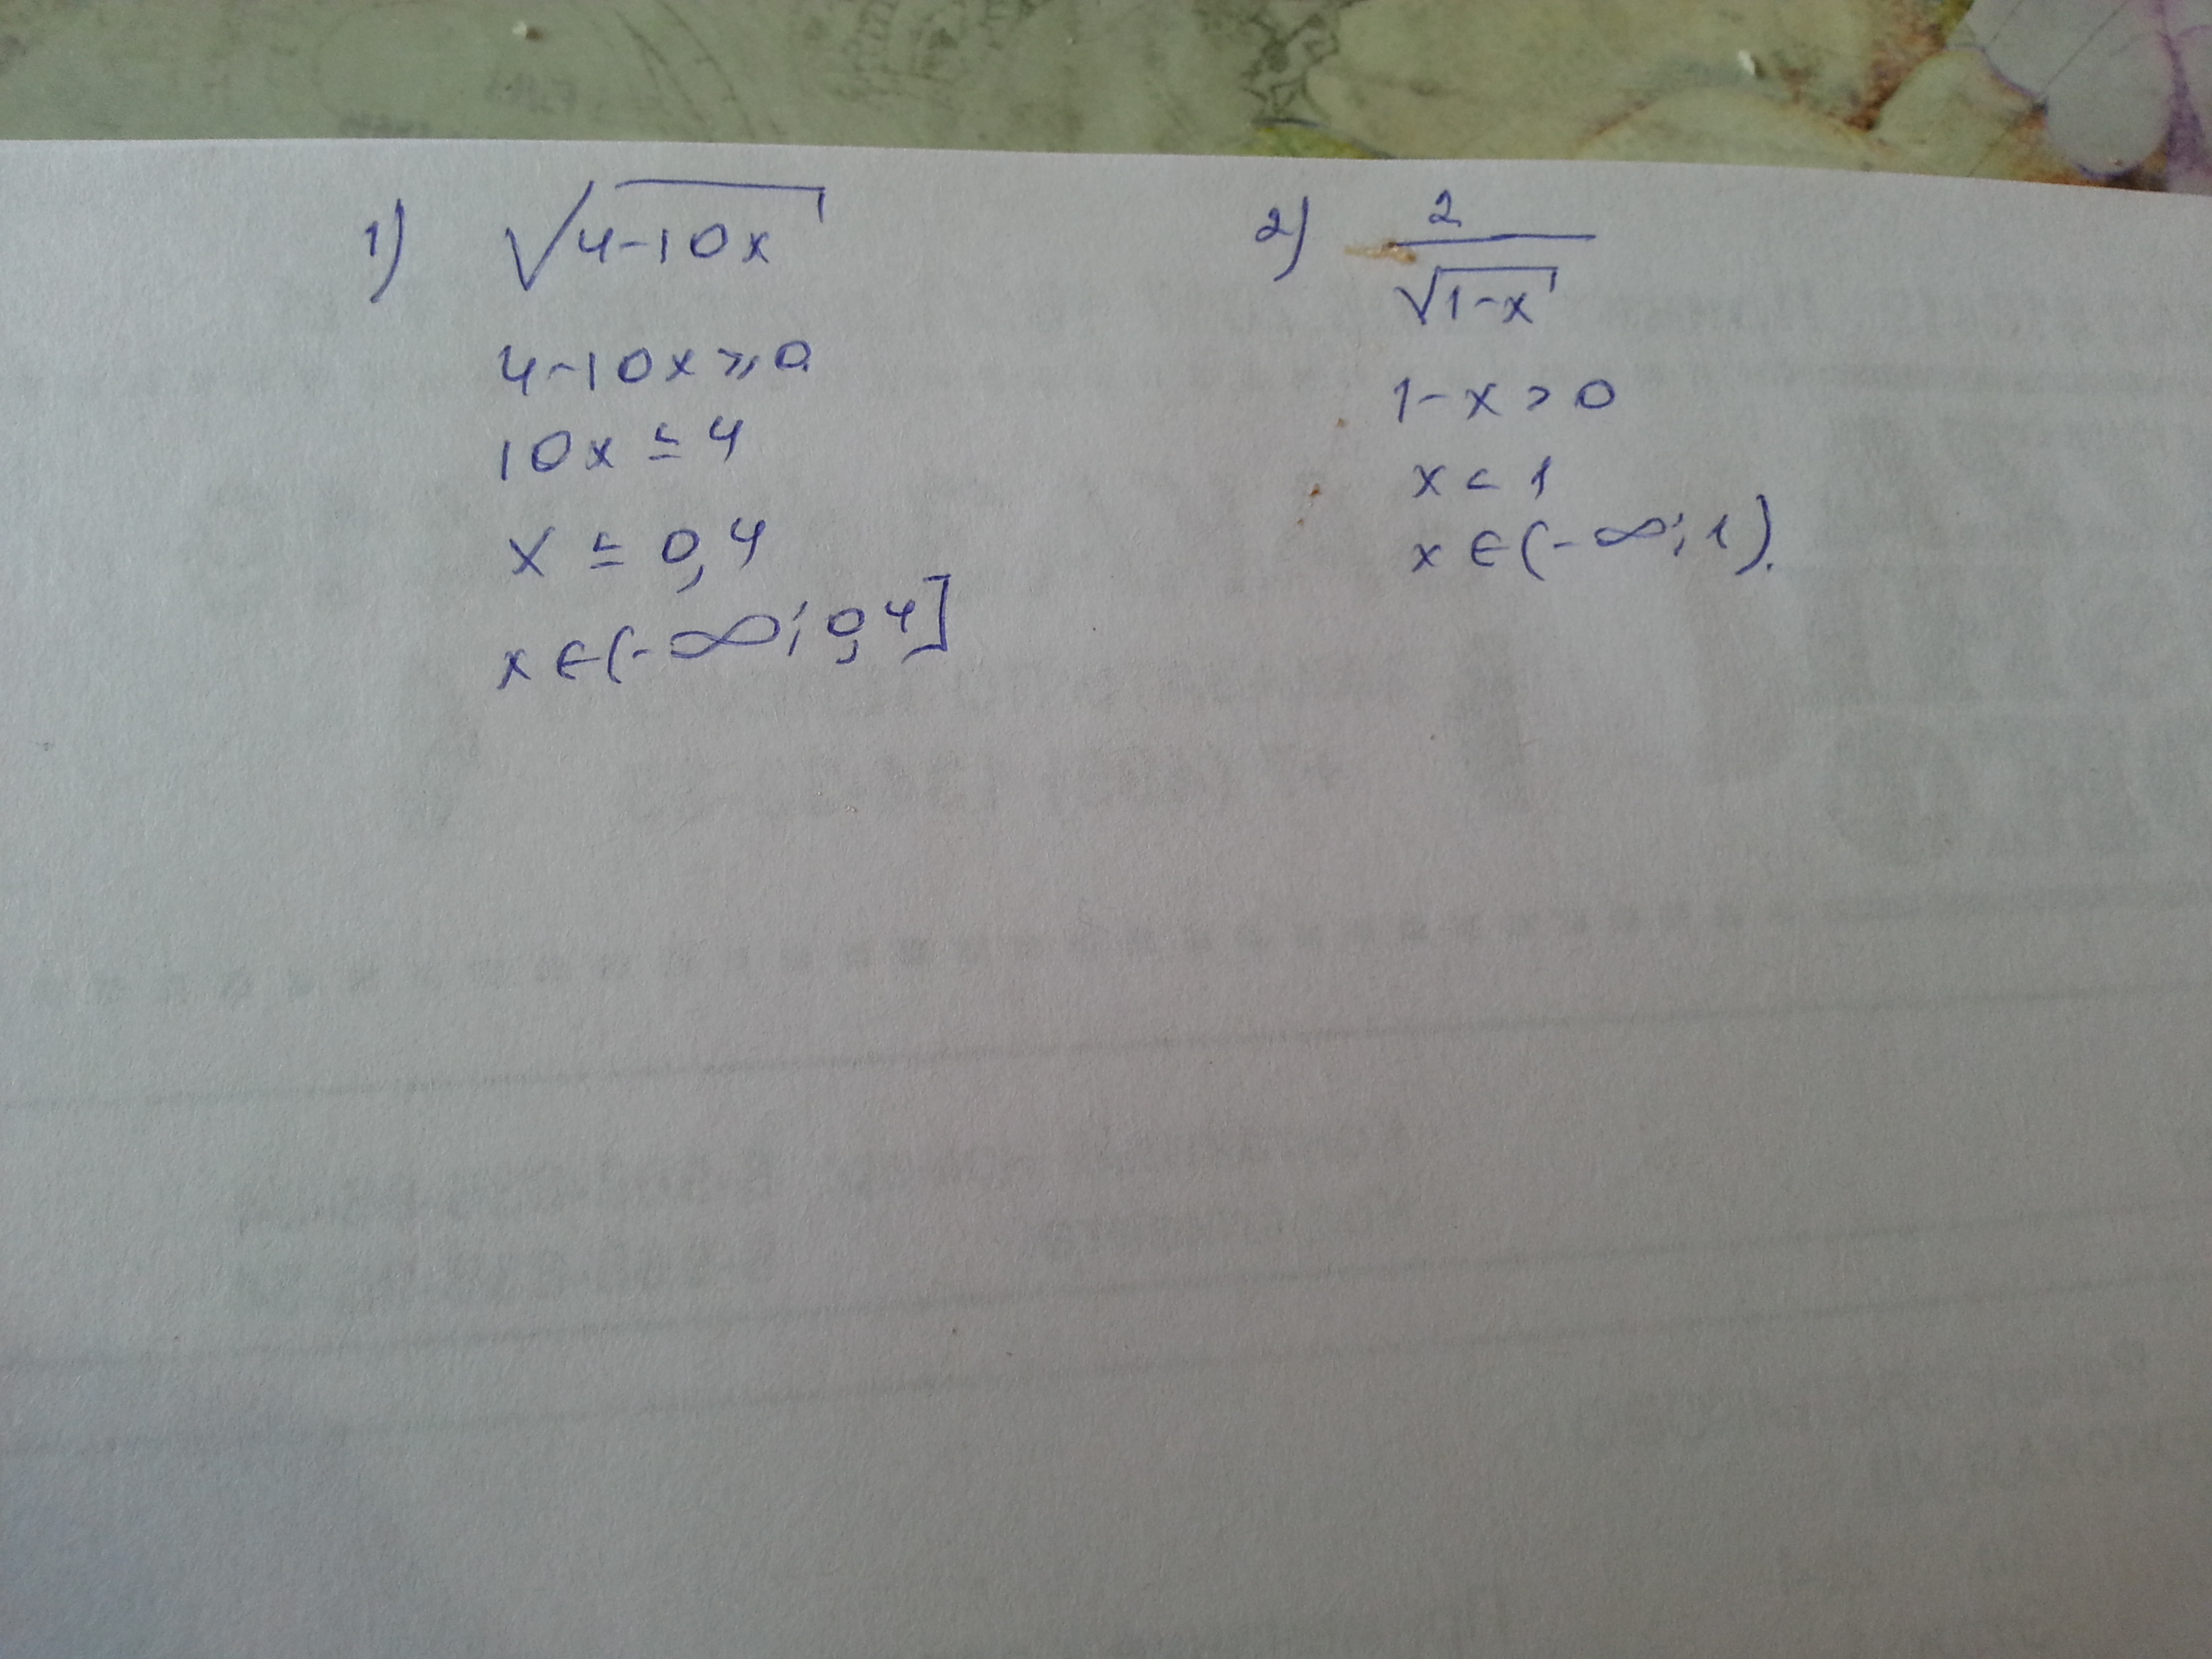 1) √4-10x
4-10x ≥ 0
10x ≤ 4
x ≤ 0,4
x ∈ (-∞; 0,4]
2) 2/√1-x
1-x > 0
x < 1
x ∈ (-∞; 1).